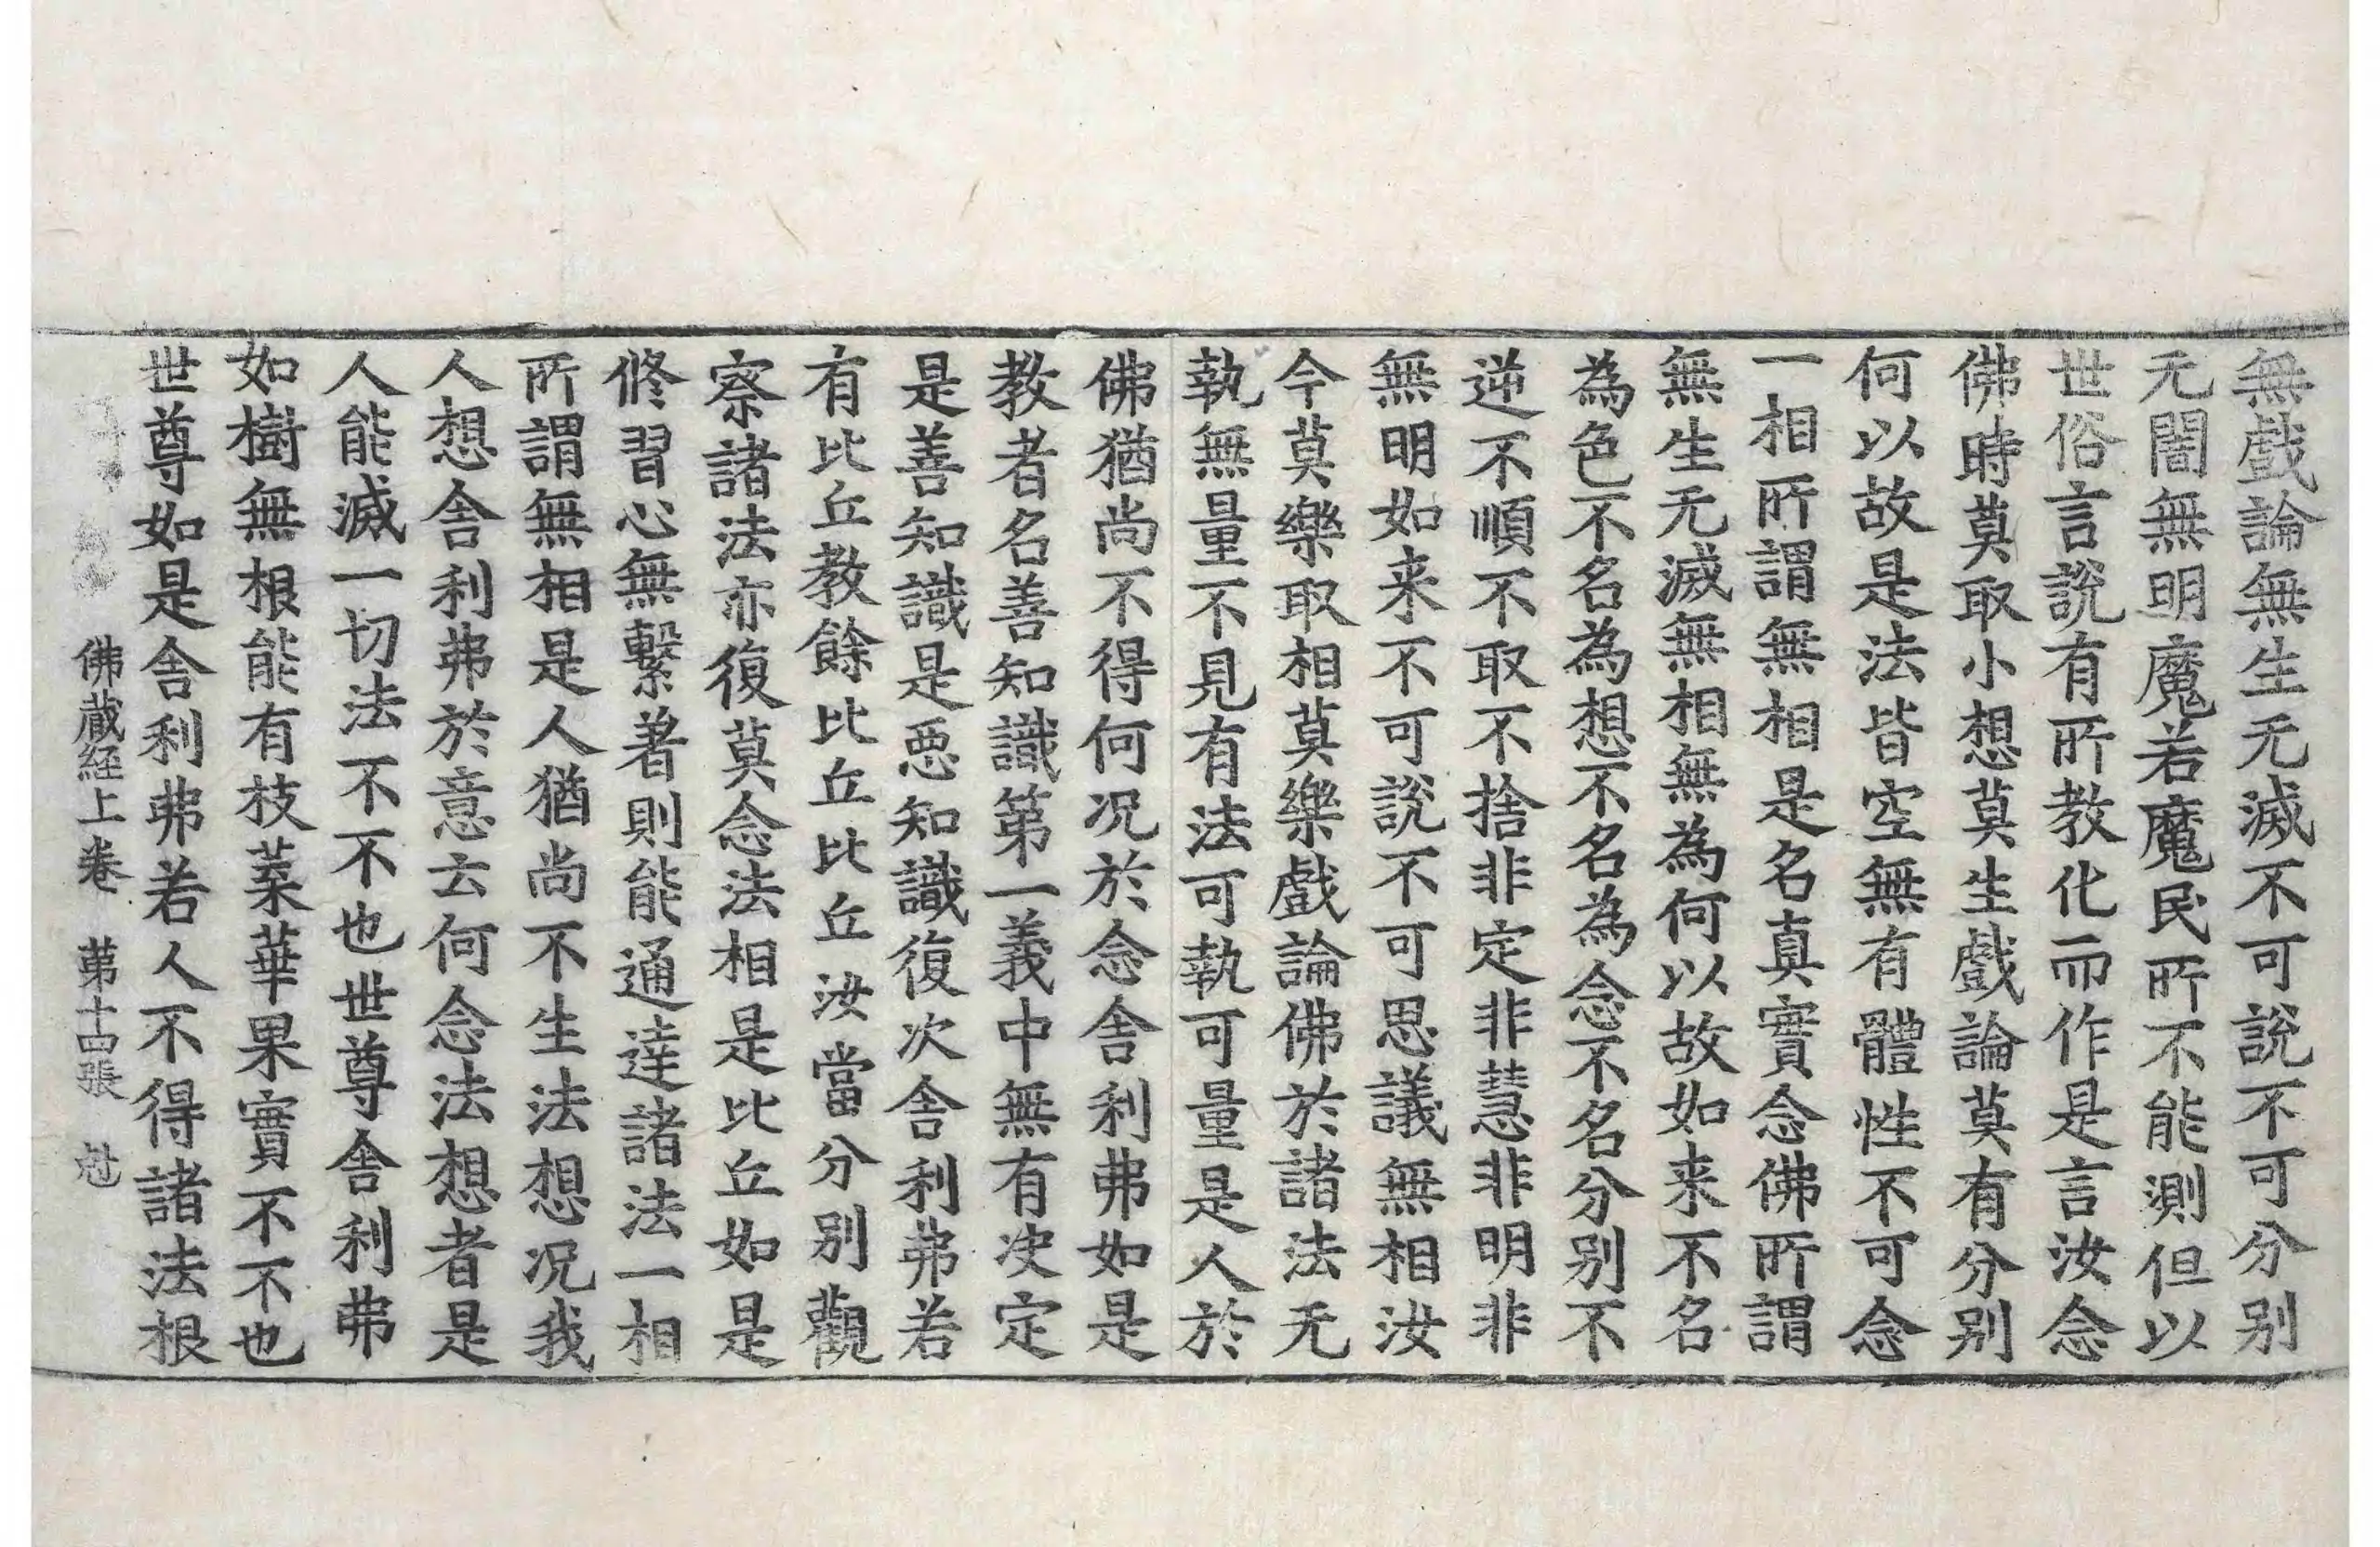 無戲論無生无滅不可說不可分别
无闇無明魔若魔民所不能測但以
世俗言說有所教化而作是言汝念
佛時莫取小想莫生戲論莫有分别
何以故是法皆空無有體性不可念
一相所謂無相是名真實念佛所謂
無生无滅無相無為何以故如来不名
為色不名為想不名為念不名分别不
逆不順不取不捨非定非慧非明非
無明如来不可說不可思議無相汝
今莫樂取相莫樂戲論佛於諸法无
執無量不見有法可執可量是人於
佛猶尚不得何况於念舎利弗如是
教者名善知識第一義中無有决定
是善知識是惡知識復次舎利弗若
有比丘教餘比丘比丘汝當分别觀
察諸法亦復莫念法相是比丘如是
修習心無繫著則能通達諸法一相
所謂無相是人猶尚不生法想况我
人想舎利弗於意云何念法想者是
人能滅一切法不不也世尊舎利弗
如樹無根能有枝葉華果實不不也
世尊如是舎利弗若人不得諸法根
佛蔵経上卷 第十四張